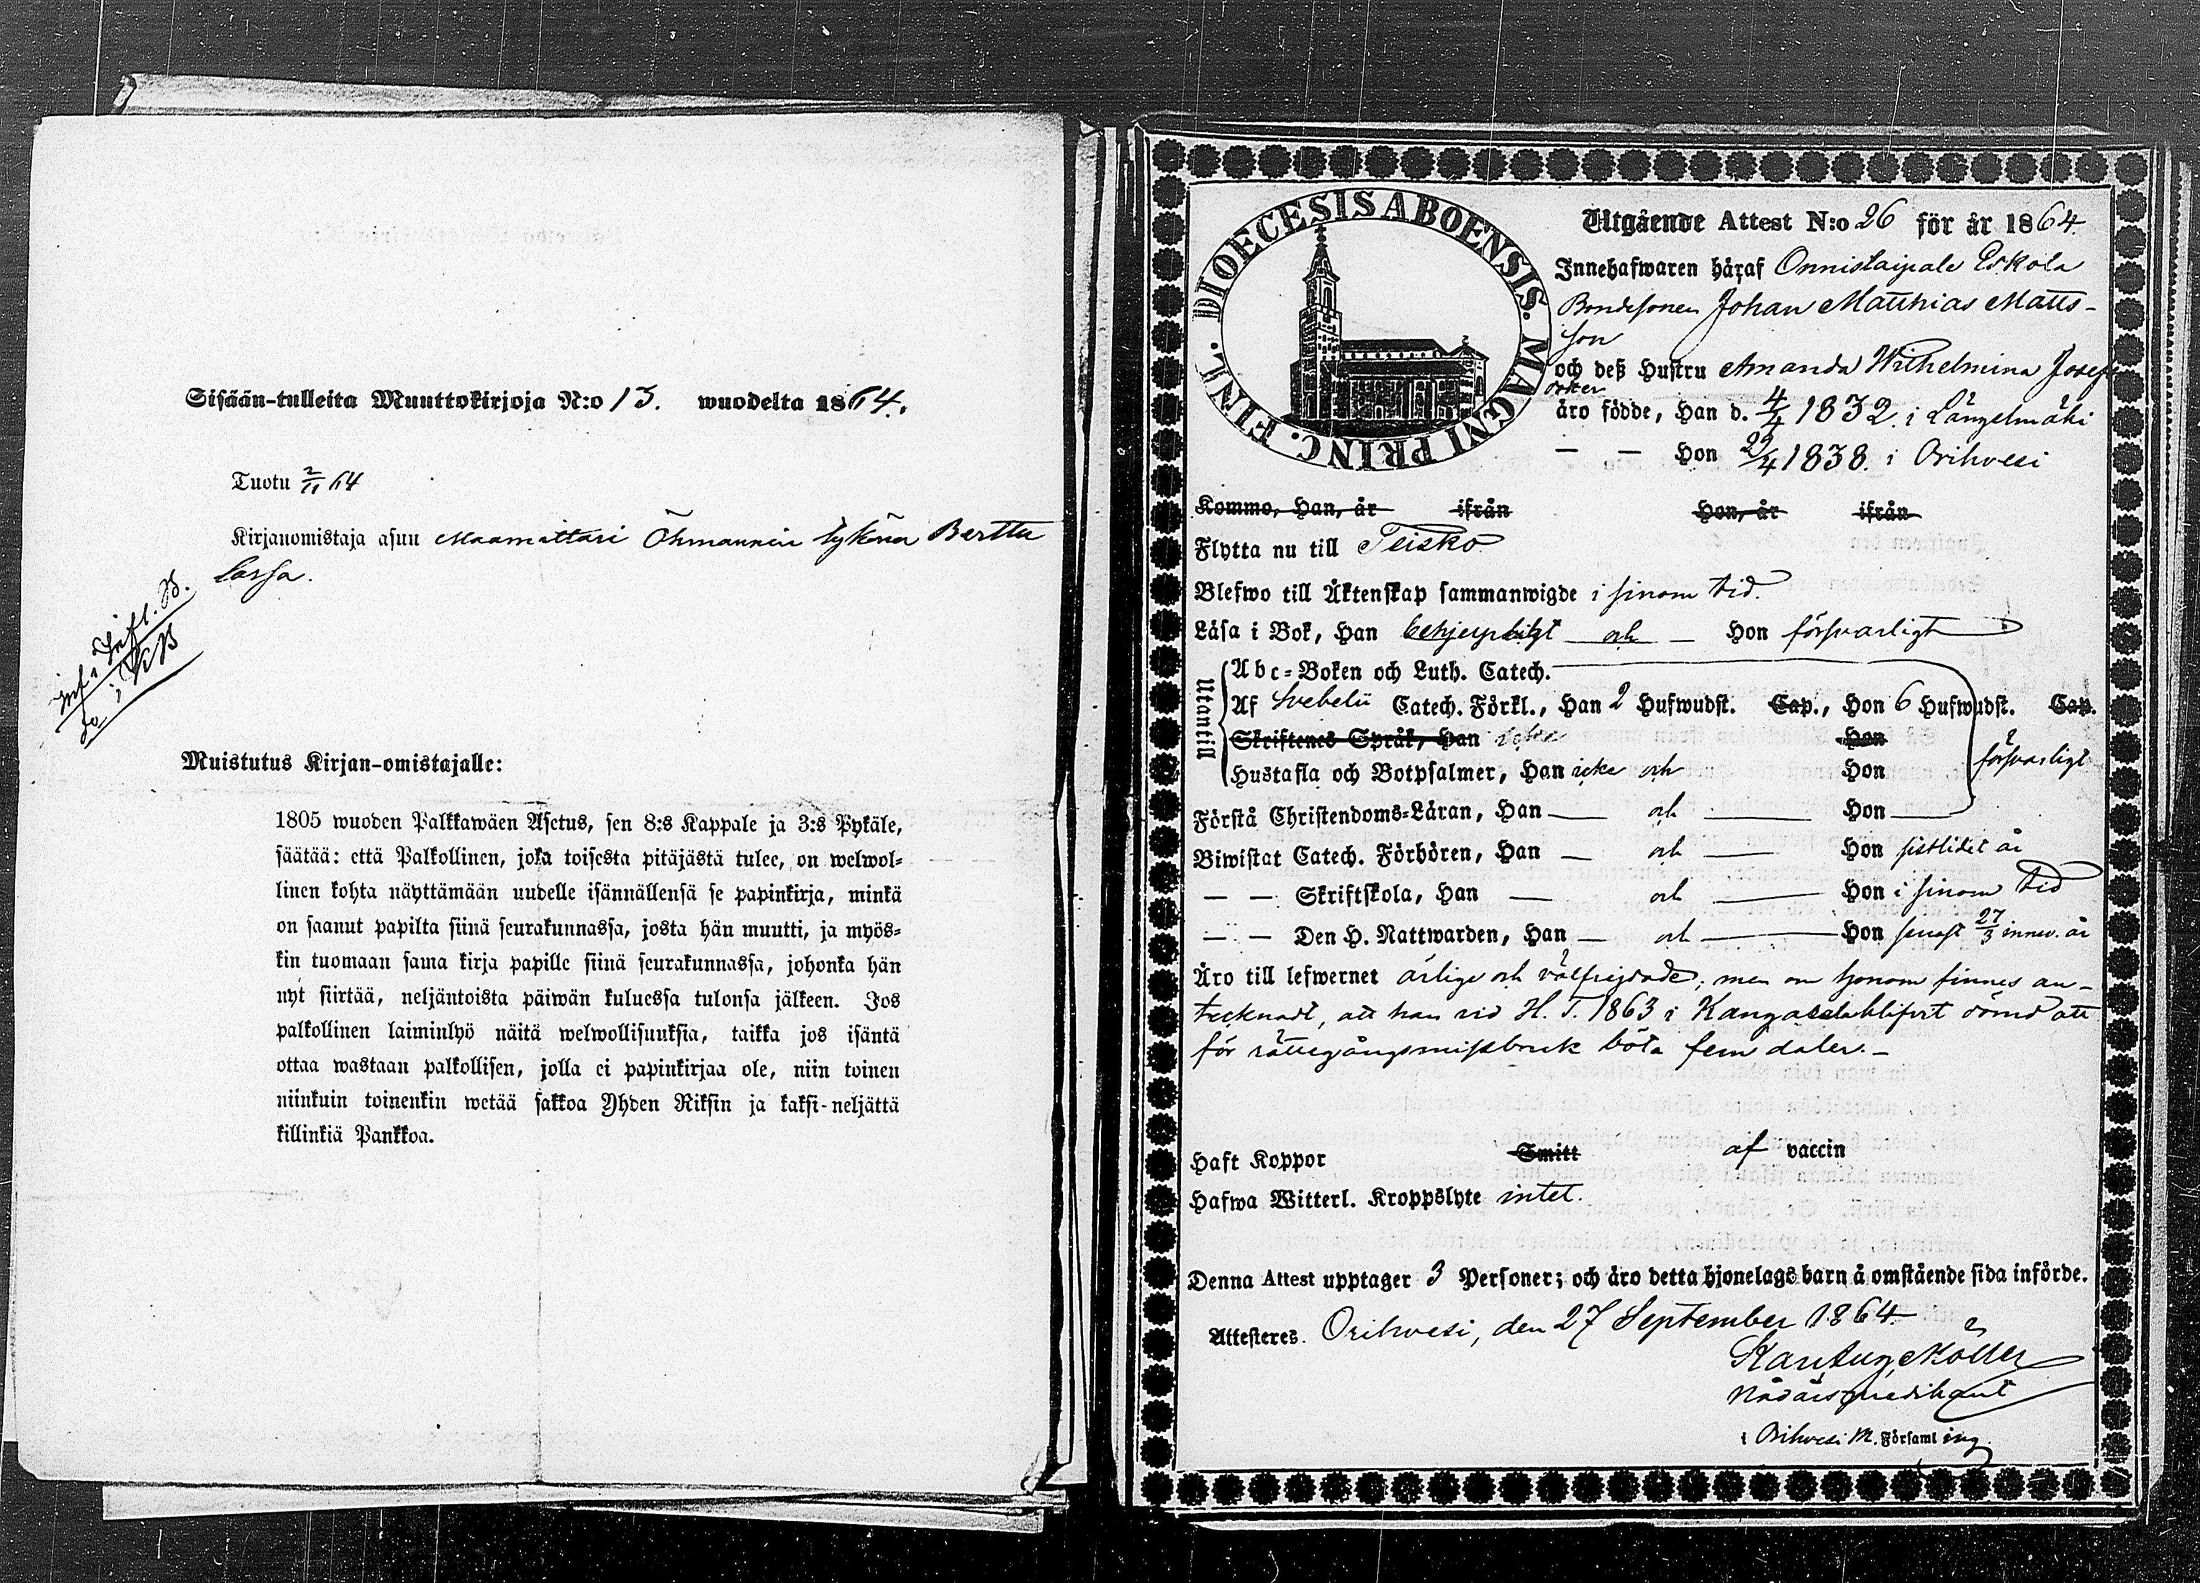 Sisään-tulleita Muuttokirjoja N:o 13. wuodelta 1864.
Tuotu 2/11 64
Kirjanomistaja asuu Maamittari Öhmannin tykönä Berttu
lassa.
i KB
Muistutus Kirjan-omistajalle:
1805 wuoden Palkkawäen Asetus, sen 8:s Kappale ja 3:s Pykäle,
säätää: että Palkollinen, joka toisesta pitäjästä tulee, on welwol-
linen kohta näyttämään uudelle isännällensä se papinkirja, minkä
on saanut papilta siinä seurakunnassa, josta hän muutti, ja myös-
kin tuomaan sama kirja papille siinä seurakunnassa, johonka hän
nyt siirtää, neljäntoista päiwän kuluessa tulonsa jälkeen. Jos
palkollinen laiminlyö näitä welwollisuuksia, taikka jos isäntä
ottaa wastaan palkollisen, jolla ei papinkirjaa ole, niin toinen
niinkuin toinenkin wetää sakkoa Yhden Riksin ja kaksi-neljättä
killinkiä Pankkoa.
DIOECESIS ABOENSIS. MAGNI PRINC. FINL.
Utgående Attest N:o 26 för år 1864.
Innehafwaren häraf Onnistaipale Eskola
Bondesonen Johan Matthias Matts-
son
och deß Hustru Amanda Wilhelmina Josefs
dotter
äro födde, Han d. 4/4 1832. i Längelmäki
— — Hon 22/4 1838. i Orihvesi
Kommo, Han, år ifrån Hon, år ifrån
Flytta nu till Teisko
Blefwo till Äktenskap sammanwigde i sinom tid.
Läsa i Bok, Han behjelpligt och — Hon försvarligt
Utantill
Abc-Boken och Luth. Catech.
Af Svebelii Catech. Förkl., Han 2 Hufwudst. Cap., Hon 6 Hufwudst. Cap.
Skriftenes Språk, Han Hon
försvarligt
Hustafla och Botpsalmer, Han icke och Hon
Förstå Christendoms-Läran, Han — och — Hon —
Biwistat Catech. Förhören, Han — och — Hon sistlidet år
— — Skriftskola, Han — och — Hon i sinom tid
— — Den H. Nattwarden, Han — och — Hon senast 27/3 innev. år
Äro till lefwernet ärlige och välfrejdade; men om honom finnes an-
tecknadt, att han vid H. T. 1863 i Kangasala blifvit dömd att
för rättegångsmissbruk böta fem daler. —
Haft Koppor Smitt af vaccin
Hafwa Witterl. Kroppslyte intet.
Denna Attest upptager 3 Personer; och äro detta hjonelags barn å omstående sida införde.
Attesteres. Orihvesi, den 27 September 1864.
Karl Aug. Möller
Nådårspredikant
i Orihvesi M. Församling